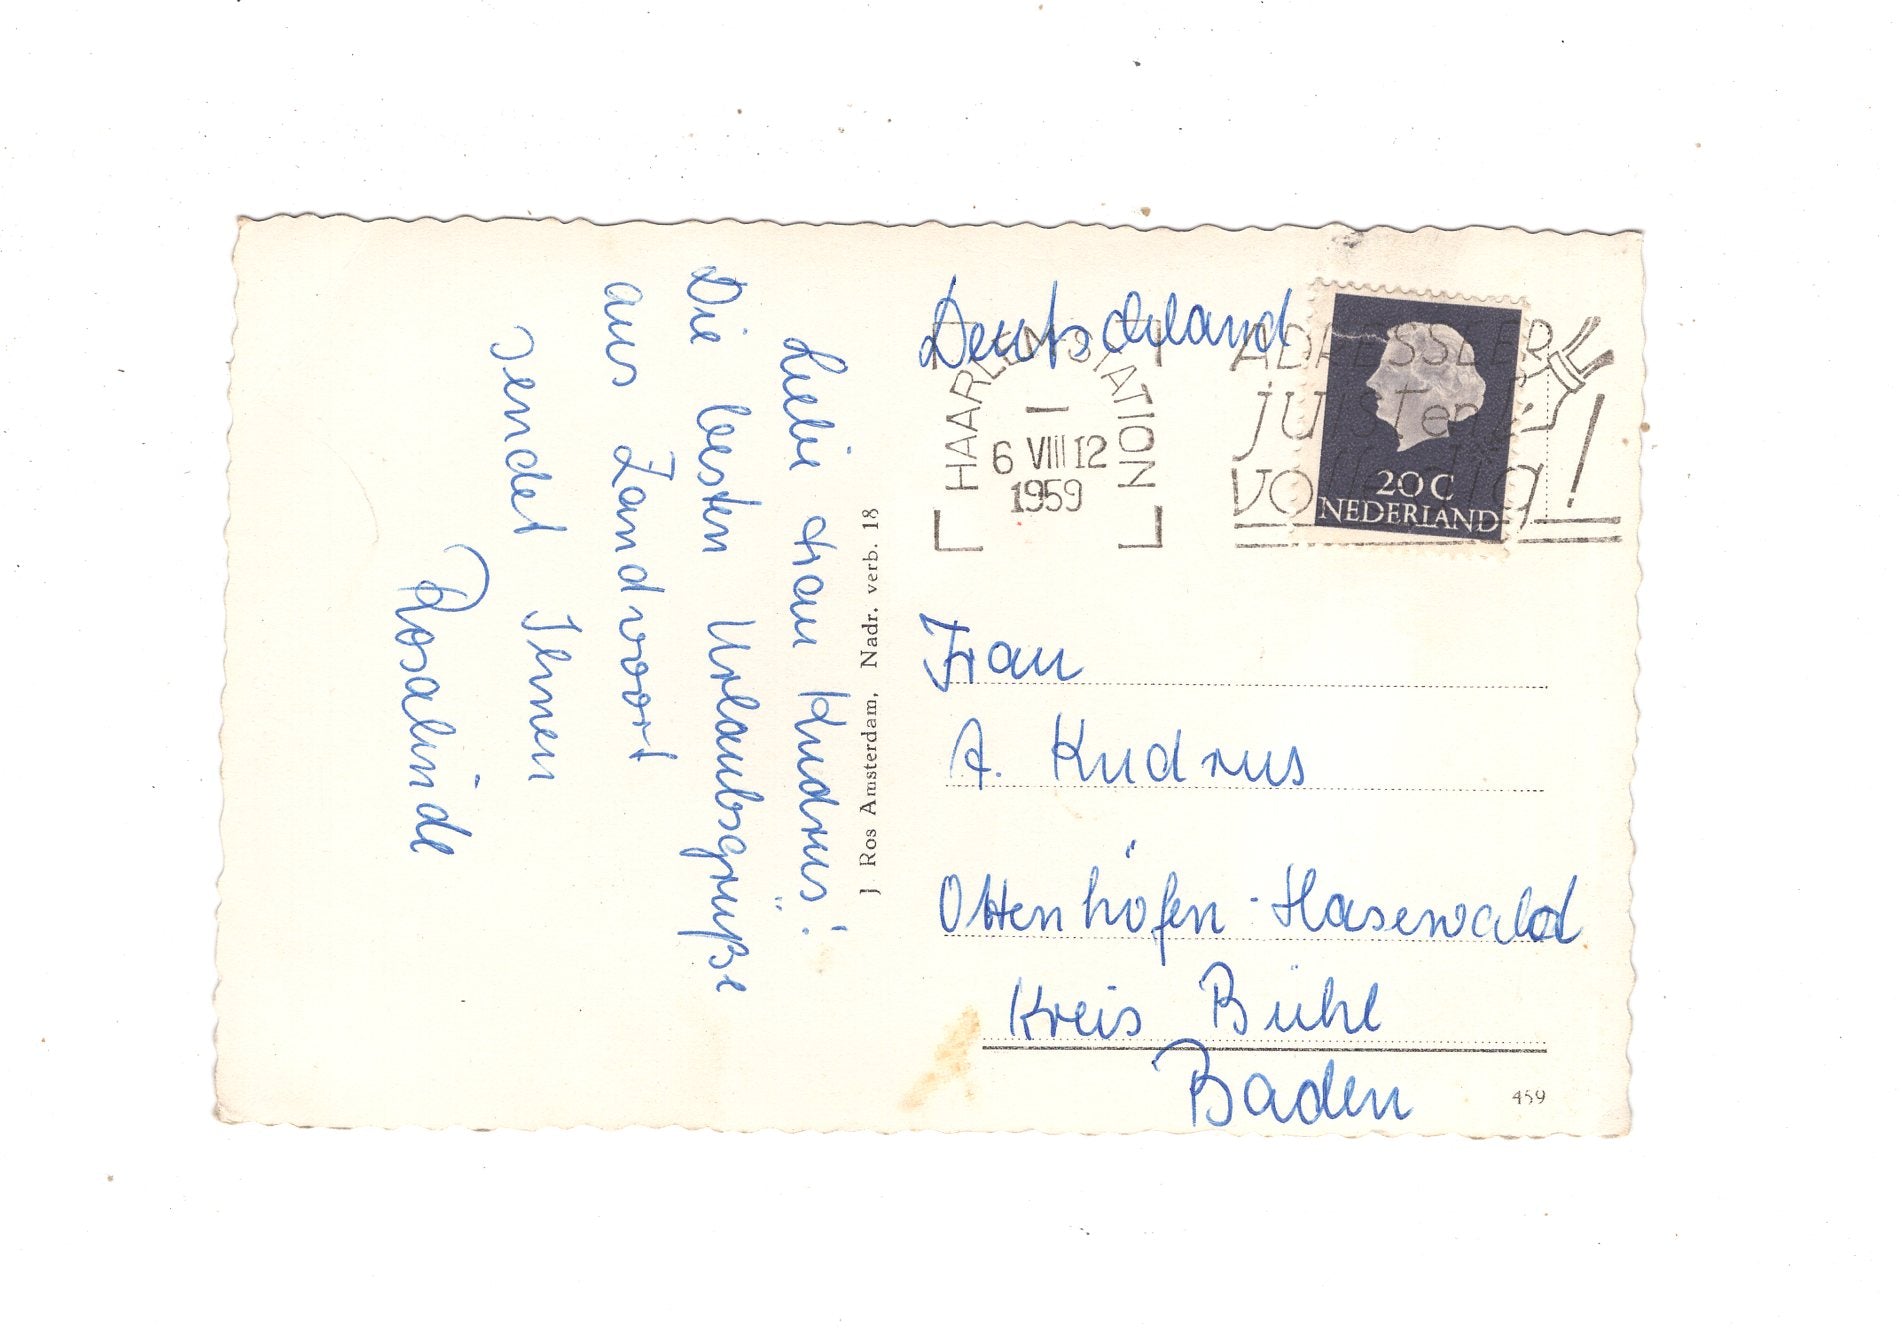 Liebe Frau Kudrus!
Die besten Urlaubsgrüße
aus Zandvoort
sendet Ihnen
Rosalinde
J. Ros Amsterdam, Nadr. verb. 18
Deutschland
HAARLEM STATION
6 VIII 12
1959
ADRESSEER
juist en
volledig!
20 C
NEDERLAND
Frau
A. Kudrus
Ottenhöfen-Hasenwald
Kreis Bühl
Baden
459